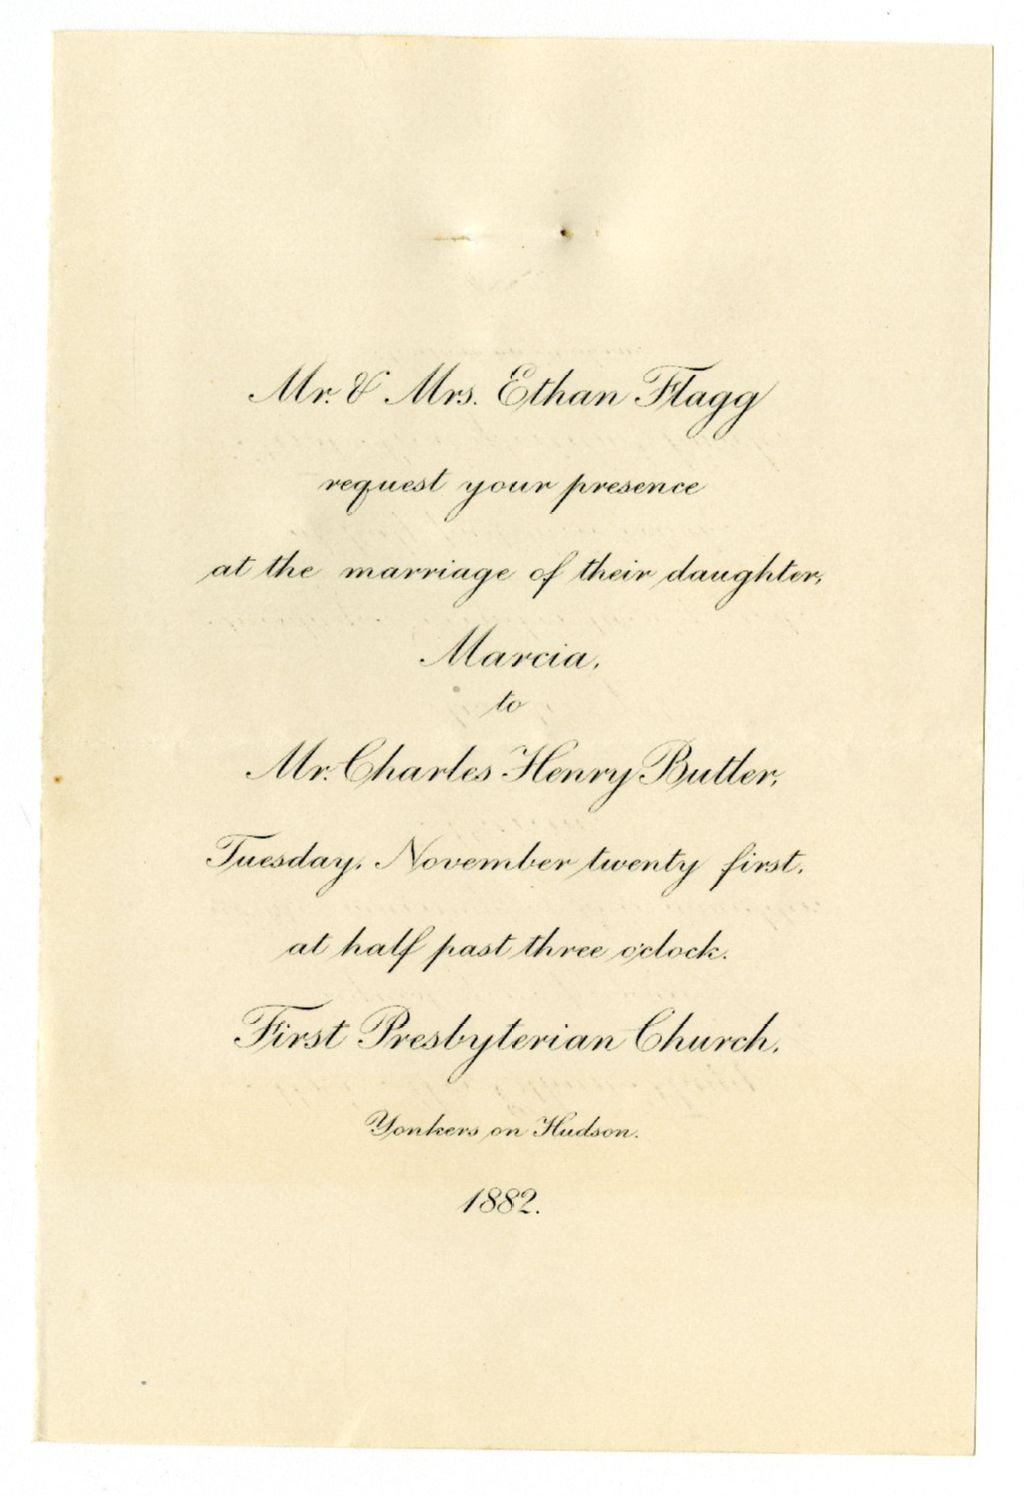 Mr. & Mrs. Ethan Flagg
request your presence
at the marriage of their daughter,
Marcia,
to
Mr. Charles Henry Butler,
Tuesday, November twenty first,
at half past three o'clock.
First Presbyterian Church,
Yonkers on Hudson.
1882.